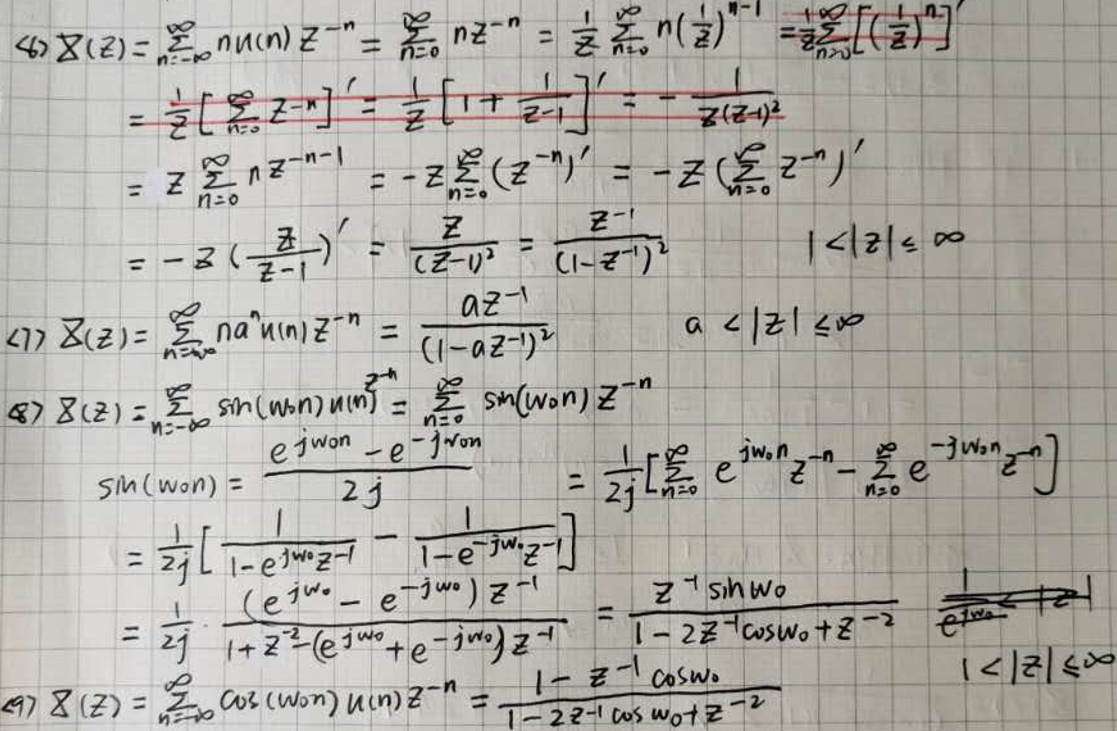 <6> X(z) = ∑_{n=-∞}^{∞} n u(n) z^{-n} = ∑_{n=0}^{∞} n z^{-n} = 1/z ∑_{n=0}^{∞} n(1/z)^{n-1} = 1/z ∑_{n=0}^{∞} [(1/z)^n]'
= 1/z [∑_{n=0}^{∞} z^{-n}]' = 1/z [1 + 1/(z-1)]' = - 1/(z(z-1)^2)
= z ∑_{n=0}^{∞} n z^{-n-1} = -z ∑_{n=0}^{∞} (z^{-n})' = -z (∑_{n=0}^{∞} z^{-n})'
= -z (z/(z-1))' = z/(z-1)^2 = z^{-1}/(1-z^{-1})^2 1<|z|≤∞
<7> X(z) = ∑_{n=-∞}^{∞} n a^n u(n) z^{-n} = az^{-1}/(1-az^{-1})^2 a<|z|≤∞
<8> X(z) = ∑_{n=-∞}^{∞} sin(w₀n) u(n) z^{-n} = ∑_{n=0}^{∞} sin(w₀n) z^{-n}
sin(w₀n) = (e^{jw₀n} - e^{-jw₀n})/2j = 1/2j [∑_{n=0}^{∞} e^{jw₀n} z^{-n} - ∑_{n=0}^{∞} e^{-jw₀n} z^{-n}]
= 1/2j [1/(1-e^{jw₀}z^{-1}) - 1/(1-e^{-jw₀}z^{-1})]
= 1/2j · (e^{jw₀} - e^{-jw₀}) z^{-1}/(1+z^{-2}-(e^{jw₀}+e^{-jw₀})z^{-1}) = z^{-1} sinw₀/(1-2z^{-1}cosw₀+z^{-2})
1<|z|≤∞
<9> X(z) = ∑_{n=-∞}^{∞} cos(w₀n) u(n) z^{-n} = (1-z^{-1} cosw₀)/(1-2z^{-1} cosw₀+z^{-2})